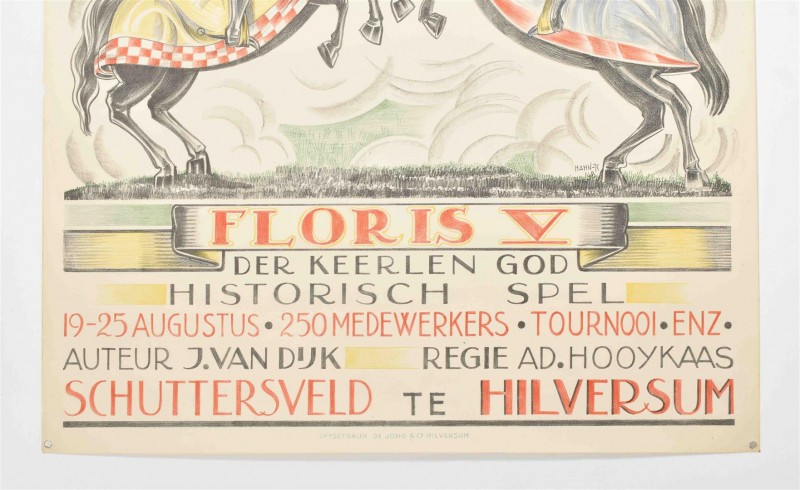 HAHN-JR
FLORIS V
DER KEERLEN GOD
HISTORISCH SPEL
19-25 AUGUSTUS • 250 MEDEWERKERS • TOURNOOI • ENZ •
AUTEUR J. VAN DIJK REGIE AD. HOOYKAAS
SCHUTTERSVELD TE HILVERSUM
OFFSETDRUK DE JONG & Co HILVERSUM